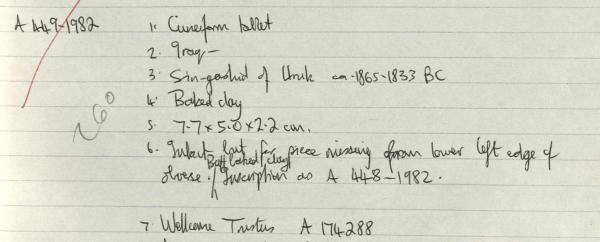 A 449-1982 1. Cuneiform tablet
2. Iraq -
3. Sin-gashid of Uruk ca. 1865-1833 BC
4. Baked clay
5. 7.7 x 5.0 x 2.2 cm.
6. Intact but for piece missing from lower left edge of
obverse. Buff baked clay Inscription as A 448-1982.
7. Wellcome Trustees A 174288